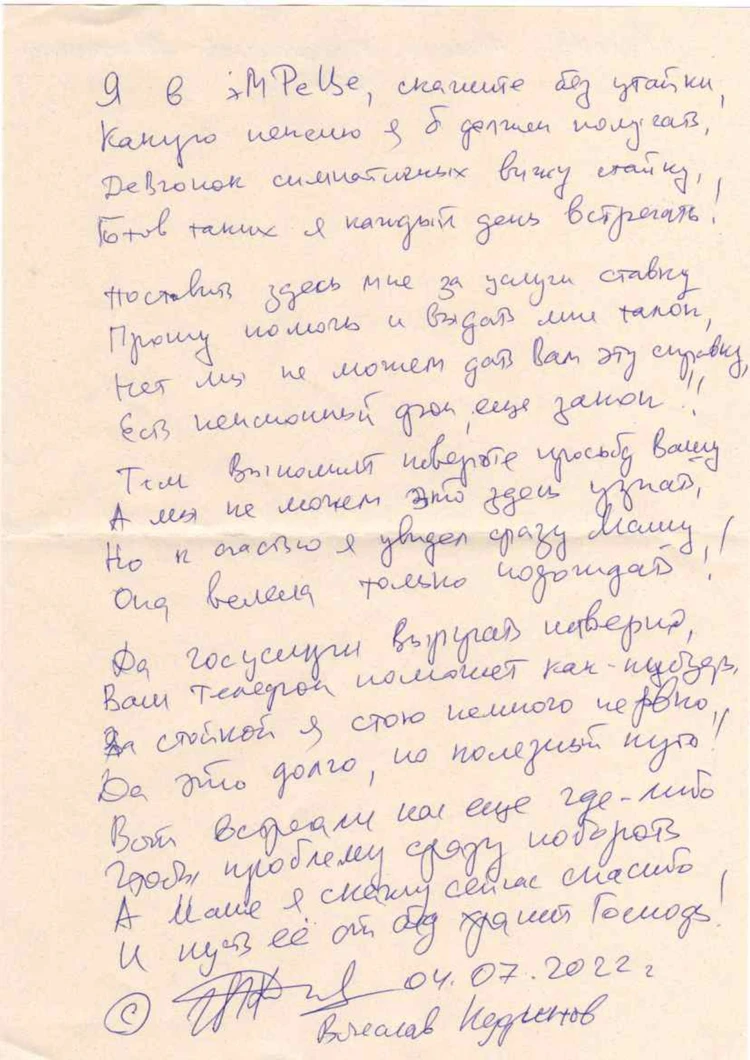 Я в эМРеЦе, скажите без утайки,
Какую пенсию я б должен получать,
Девчонок симпатичных вижу стайку,
Готов таких я каждый день встречать!
Поставить здесь мне за услуги ставку
Прошу помочь и выдать мне талон,
Нет мы не можем дать Вам эту справку,
Есть пенсионный фон, еще закон!!
Там выполнят поверьте просьбу Вашу
А мы не можем это здесь узнать,
Но к счастью я увидел сразу Машу,
Она велела только подождать!
Да госуслуги выручат наверно,
Вам телефон поможет как-нибудь,
За стойкой я стою немного нервно,
Да это долго, но полезный путь!
Вот встречали нас еще где-либо
Чтобы проблему сразу побороть
А Маше я скажу сейчас спасибо,
И пусть её от бед хранит Господь!
© 04.07.2022 г
Вячеслав